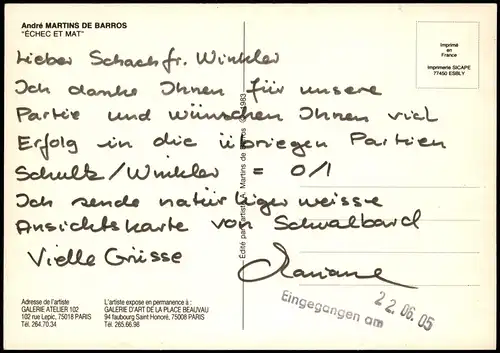 André MARTINS DE BARROS
"ÉCHEC ET MAT"
Imprimé
en
France
Imprimerie SICAPE
77450 ESBLY
Lieber Schachfr. Winkler
Ich danke Ihnen für unsere
Partie und wünschen Ihnen viel
Erfolg in die übriegen Partien
Schultz/Winkler = 0/1
Ich sende natürligerweisse
Ansichtskarte von Schwalbard
Vielle Grüsse
Mariane
Édité par l'artiste A. Martins de Barros © 1983
Adresse de l'artiste
GALERIE ATELIER 102
102 rue Lepic, 75018 PARIS
Tél. 264.70.34
L'artiste expose en permanence à :
GALERIE D'ART DE LA PLACE BEAUVAU
94 faubourg Saint Honoré, 75008 PARIS
Tél. 265.66.98
Eingegangen am 22.06.05